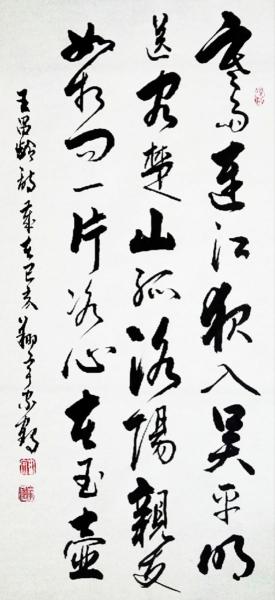 寒雨连江夜入吴平明
送客楚山孤洛陽親友
如相问一片冰心在玉壶
王昌龄詩 歲在己亥